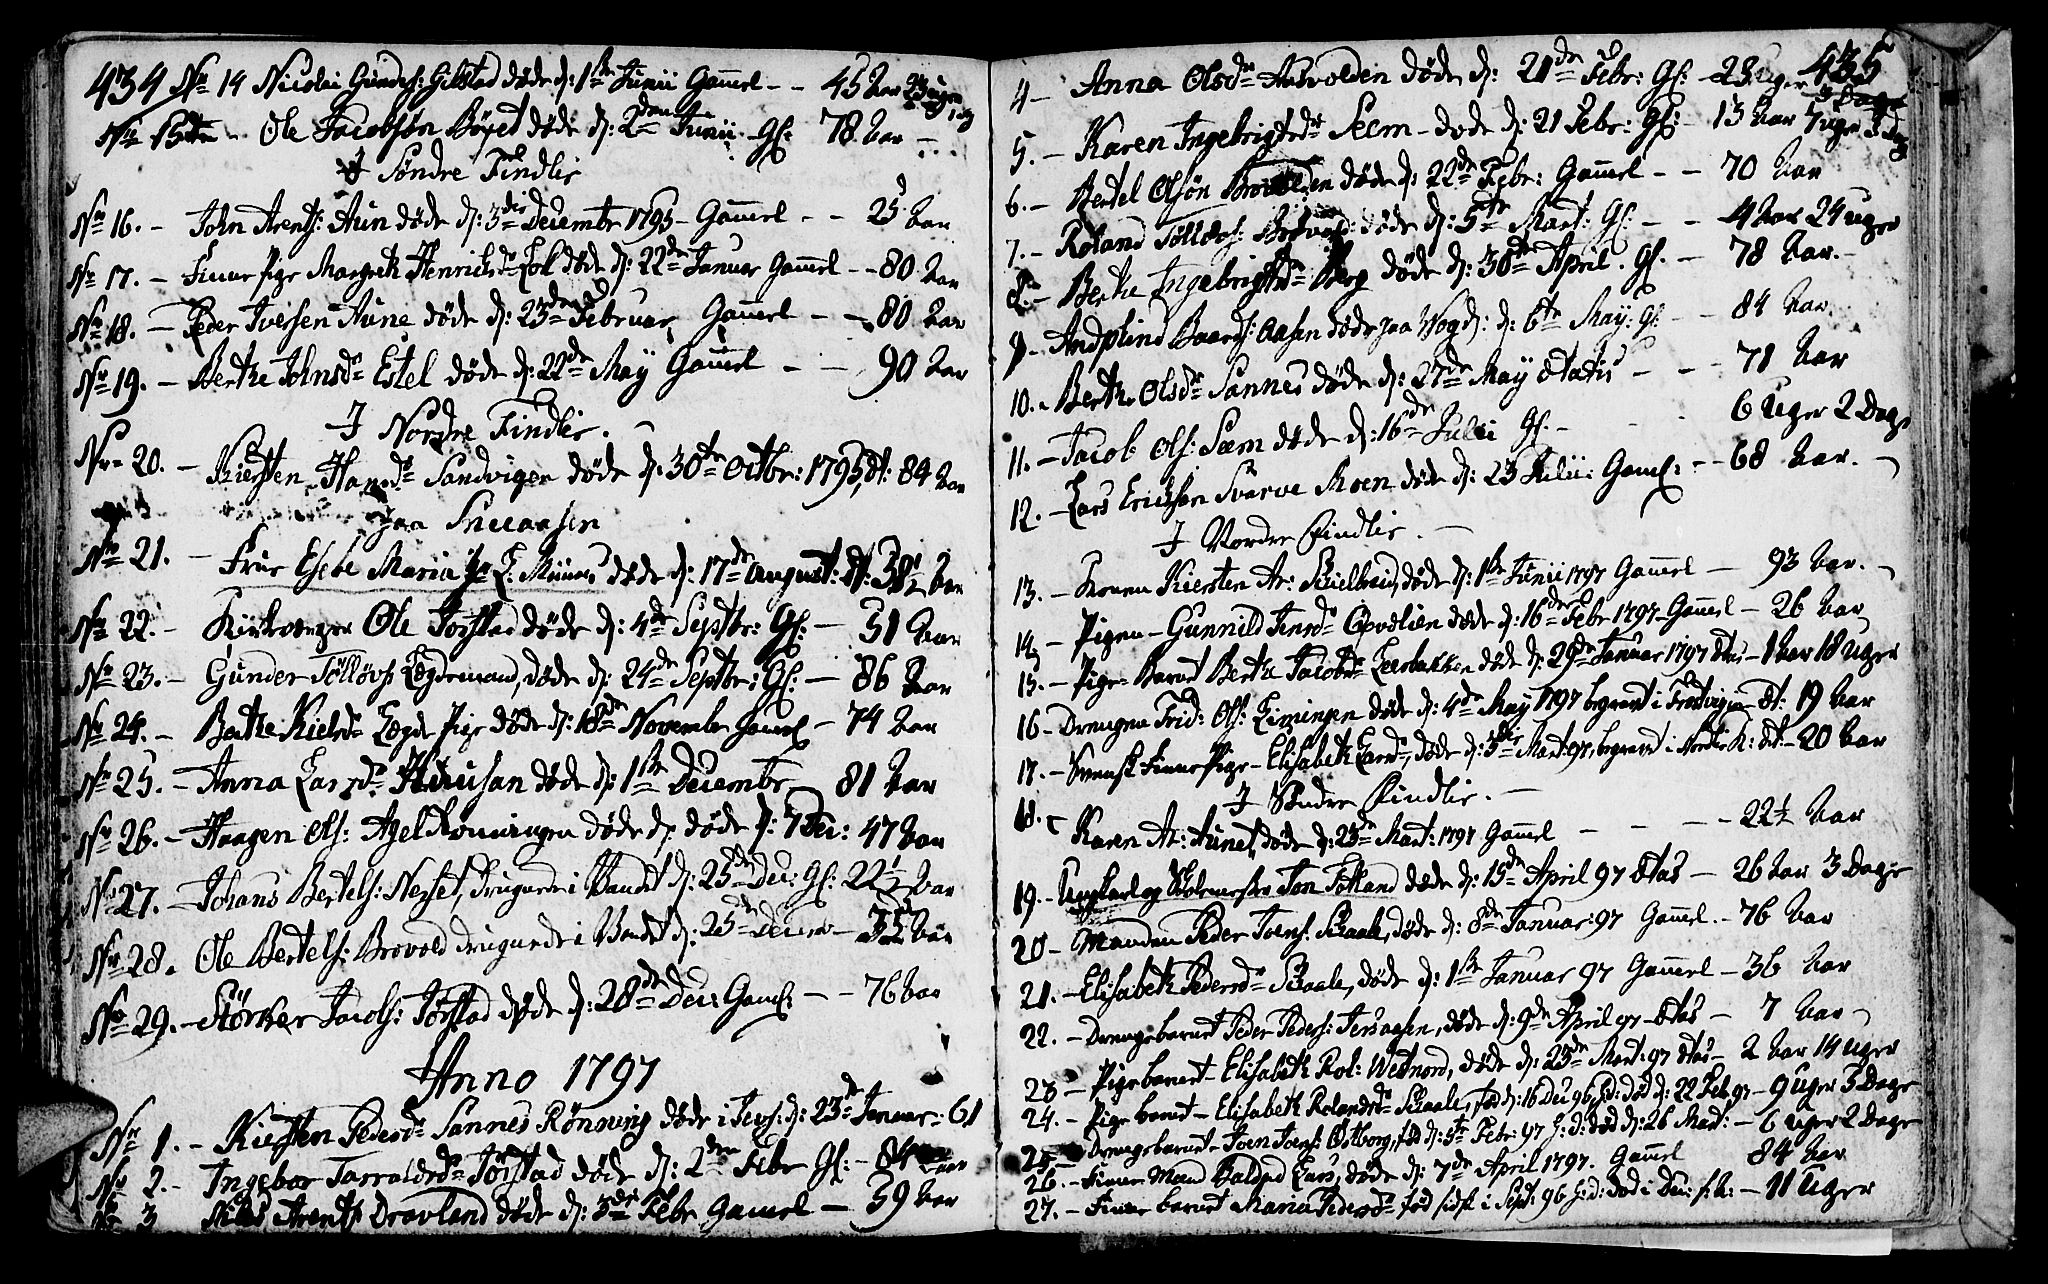 434 No 14 Nicolai Gunders: Gilstad døde d: 1ste Junii Gamel - - 45 Aar 23 uger
No 15 - Ole Jacobsøn døde d: 2den Junii Gl: 78 Aar
I Søndre Findlie
No 16. - John Arents: Aun døde d: 3die Decembr 1795 - Gamel - - 25 Aar
No 17. - Finne Pige Margreth Henrichsdr døde d: 22de Januar Gamel - - 80 Aar
No 18. - Peder Iversen Aune døde d: 23de Februar Gamel - - 80 Aar
No 19. - Berthe Johnsdr Estel døde d: 22de May Gamel - - 90 Aar
I Nordre Findlie.
No 20. - Kiersten Hansdr Sandvigen døde d: 30te Octbr: 1795, æt: 84 Aar
paa Sneeaasen
No 21. - Frue Esebe Maria døde d: 17de august: æt: 38½ Aar
No 22. - Kirkeværger Ole Jørstad døde d: 4de Septbr: Gl: - 51 Aar
No 23. - Gunder Tølløvs Legdemand, døde d: 24de Septbr: Gl: - 86 Aar
No 24. - Berthe Kielsdr Legde Pige døde d: 18de November Gamel - 74 Aar
No 25. - Anna Larsdr døde d: 1ste Decembr 81 Aar
No 26. - Haagen Ols: Agel Rønningen døde d: døde d: 7 Dec: 47 Aar
No 27. - Johans Bertels: Nesset, drugnede i Vandet d: 25de Dec: Gl: 22½ Aar
No 28. Ole Bertels: Brovold druguede i Vandet d: 25de Decem - 35 Aar
No 29. - Størker Jacobs: Jørstad døde d: 28de Dec: Gamel - - 76 Aar
Anno 1797
No 1. - Kiersten Pedersdr Sannes Rønning døde i d: 23de Januar - 61
No 2. - Ingebor Tarraldsdr Jørstad døde d: 2den Febr Gl: - 84 Aar
No 3 Nils Arents Dravland døde d: 3die Febr Gamel - 59 Aar
435
4 - Anna Olsdr døde d: 21de Febr: Gl: - 23 uger 3 Dage
5. - Karen Ingebrigtsdr Seem - døde d: 21 Febr: Gl: - 13 Aar 7 uger 3 Dag
6. - Bertel Olsøn Brovolden døde d: 22de Febr: Gamel - - 70 Aar
7. - Roland Tølløvs: døde d: 5te Mart: Gl: - - 4 Aar 24 uger
8. - Berthe Ingebrigtsdr Berg døde d: 30te April. Gl. - 78 Aar.
9 - Andphind Baards: Aasen døde paa d: 6te May: Gl - - 84 Aar
10. - Berthe Olsdr Sannes døde d: 27de May ætatis - - - 71 Aar
11. - Jacob Ols: Seem døde d: 16de Julii Gl. - - - 6 Uger 2 Dage
12. - Lars Erichsen Svarve Moen døde d: 23 Julii: Gamel: - - 68 Aar. -
I Nordre Findlie. -
13. - Konen Kiersten Ar: Skielbrei, døde d: 1ste Junii 1797 Gamel - 93 Aar. -
14. - Pigen - Gunnild Jensdr døde d: 16de Febr 1797 - Gamel - 26 Aar
15. - Pige-Barnet Berthe Jacobsdr døde d: 29de Januar 1797 ætas - 1 Aar 18 Uger
16 - Drengen Frid: Ols: Limingen døde d: 4de May 1797 begravet i Frostvigen æt: 19 Aar
17. - Svensk Finne Pige - Elisabeth Larsdr, døde d: 5te Mart: 97, begravet i Nordre K: æt: - 20 Aar
I Søndre Findlie. -
18. - Karen Ar: Aunet, døde d: 23de Mart: 1797 Gamel - - - - 22½ Aar
19. - Ungkarl og Skolemester Jon Totland døde d: 15de April 97 ætas - 26 Aar 3 Dage
20 - Manden Peder Joens: Skaale, døde d: 8de Januar: 97 Gamel. - 76 Aar
21. - Elisabeth Pedersdr Skaale, døde d: 1ste Januar 97 Gamel - 36 Aar
22. - Drengebarnet Peder Peders: døde d: 9de April 97 - ætas - 7 Aar -
23 - Pigebarnet - Elisabeth Rol: Westnord, døde d: 23de Mart: 97 ætas - 2 Aar 14 Uger
24. - Pige barnet - Elisabeth Rolandsdr Skaale, fød d: 16 Dec 96, h: d: død d: 22 Feb. 97 - 9 Uger 5 Dage
25 - Drengebarnet - Joen Joens: Østborg, fød d: 5te Febr: 97 h: d: død d: 26 Mart: - 6 Uger 2 Dage
26. - Finne Mand Lars, døde d: 7de April 1797. Gamel 84 Aar
27. - Finne barnet Maria Pedersdr fød sidst i Sept: 96 h: d: død i Dec: s: A: - 11 Uger